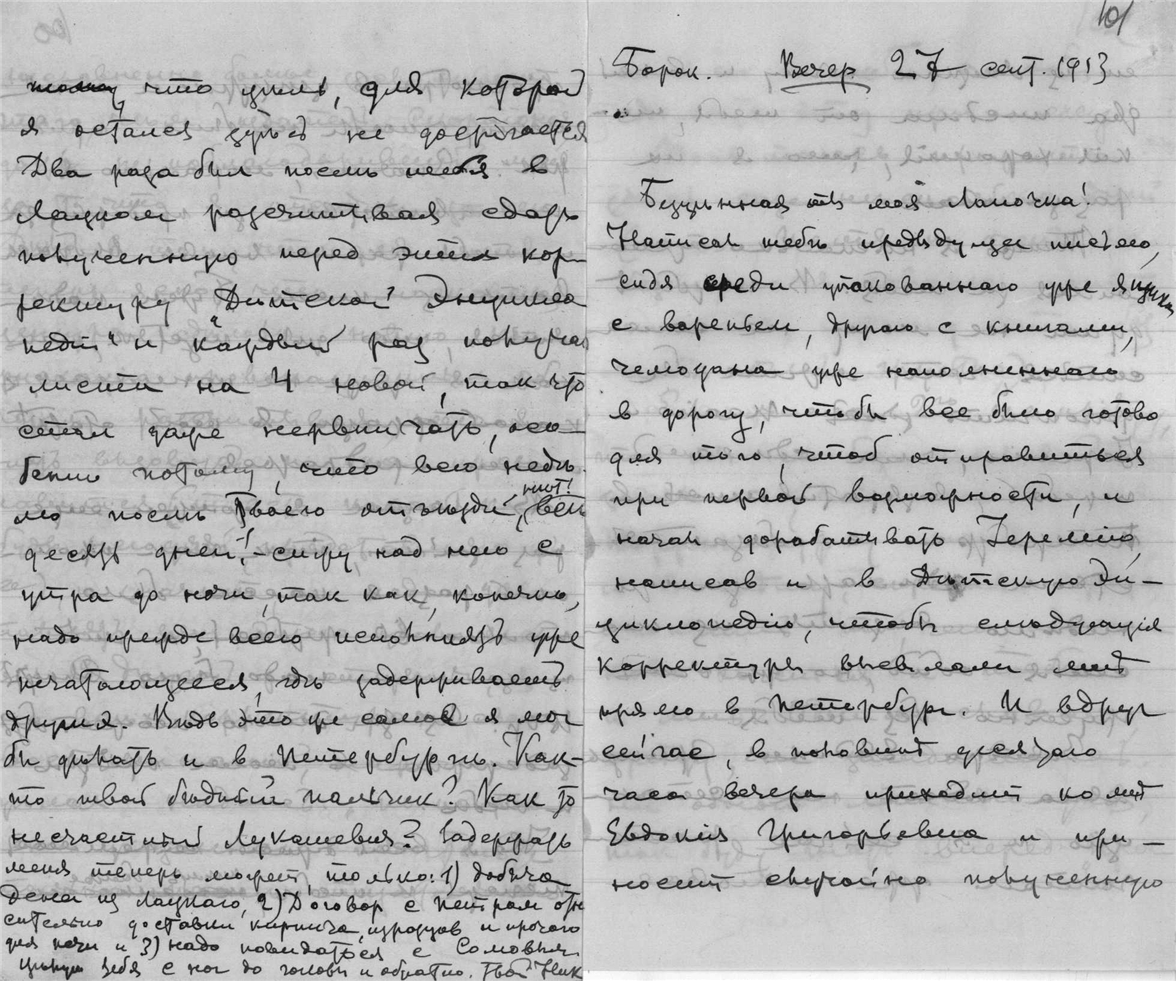 что цѣль, для которой
я остался здѣсь не достигается
Два раза был послѣ тебя в
Лацком разсчитывая сдать
полученную перед этим кор-
ректуру „Дѣтской Энцикло
педіи“ и каждый раз получал
листы на 4 новой, так что
стал даже нервничать, осо-
бенно потому, что всю недѣ-
лю послѣ Твоего отъѣзда, (нѣт! всѣ
десять дней!- сижу над нею с
утра до ночи, так как, конечно,
надо прежде всего исполнять уже
печатающееся, гдѣ задерживаешь
других. Вѣдь это же самое я мог
бы дѣлать и в Петербургѣ. Как-
то твой бѣдный пальчик? Как то
несчастный Лукашевич? Задержать
меня теперь может только: 1) добыча
денег из Лацкаго, 2) Договор с Петром отно
сительно доставки кирпича, изразцов и прочаго
для печи и 3) надо повидаться с Соловьем
Цѣлую Тебя с ног до головы и обратно. Твой Ник
101
Борок. Вечер 27 сент. 1913
Безцѣнная ты моя Лапочка!
Написал тебѣ предыдущее письмо,
сидя среди упакованнаго уже ящика
с вареньем, другого с книгами,
чемодана уже наполненнаго
в дорогу, чтобы все было готово
для того, чтоб отправиться
при первой возможности, и
начал дорабатывать Іеремію,
написав и в Дѣтскую Эн-
циклопедію, чтобы слѣдующія
корректуры высылали мнѣ
прямо в Петербург. И вдруг
сейчас, в половинѣ десятаго
часа вечера приходит ко мнѣ
Евдокія Григорьевна и при-
носит случайно полученную